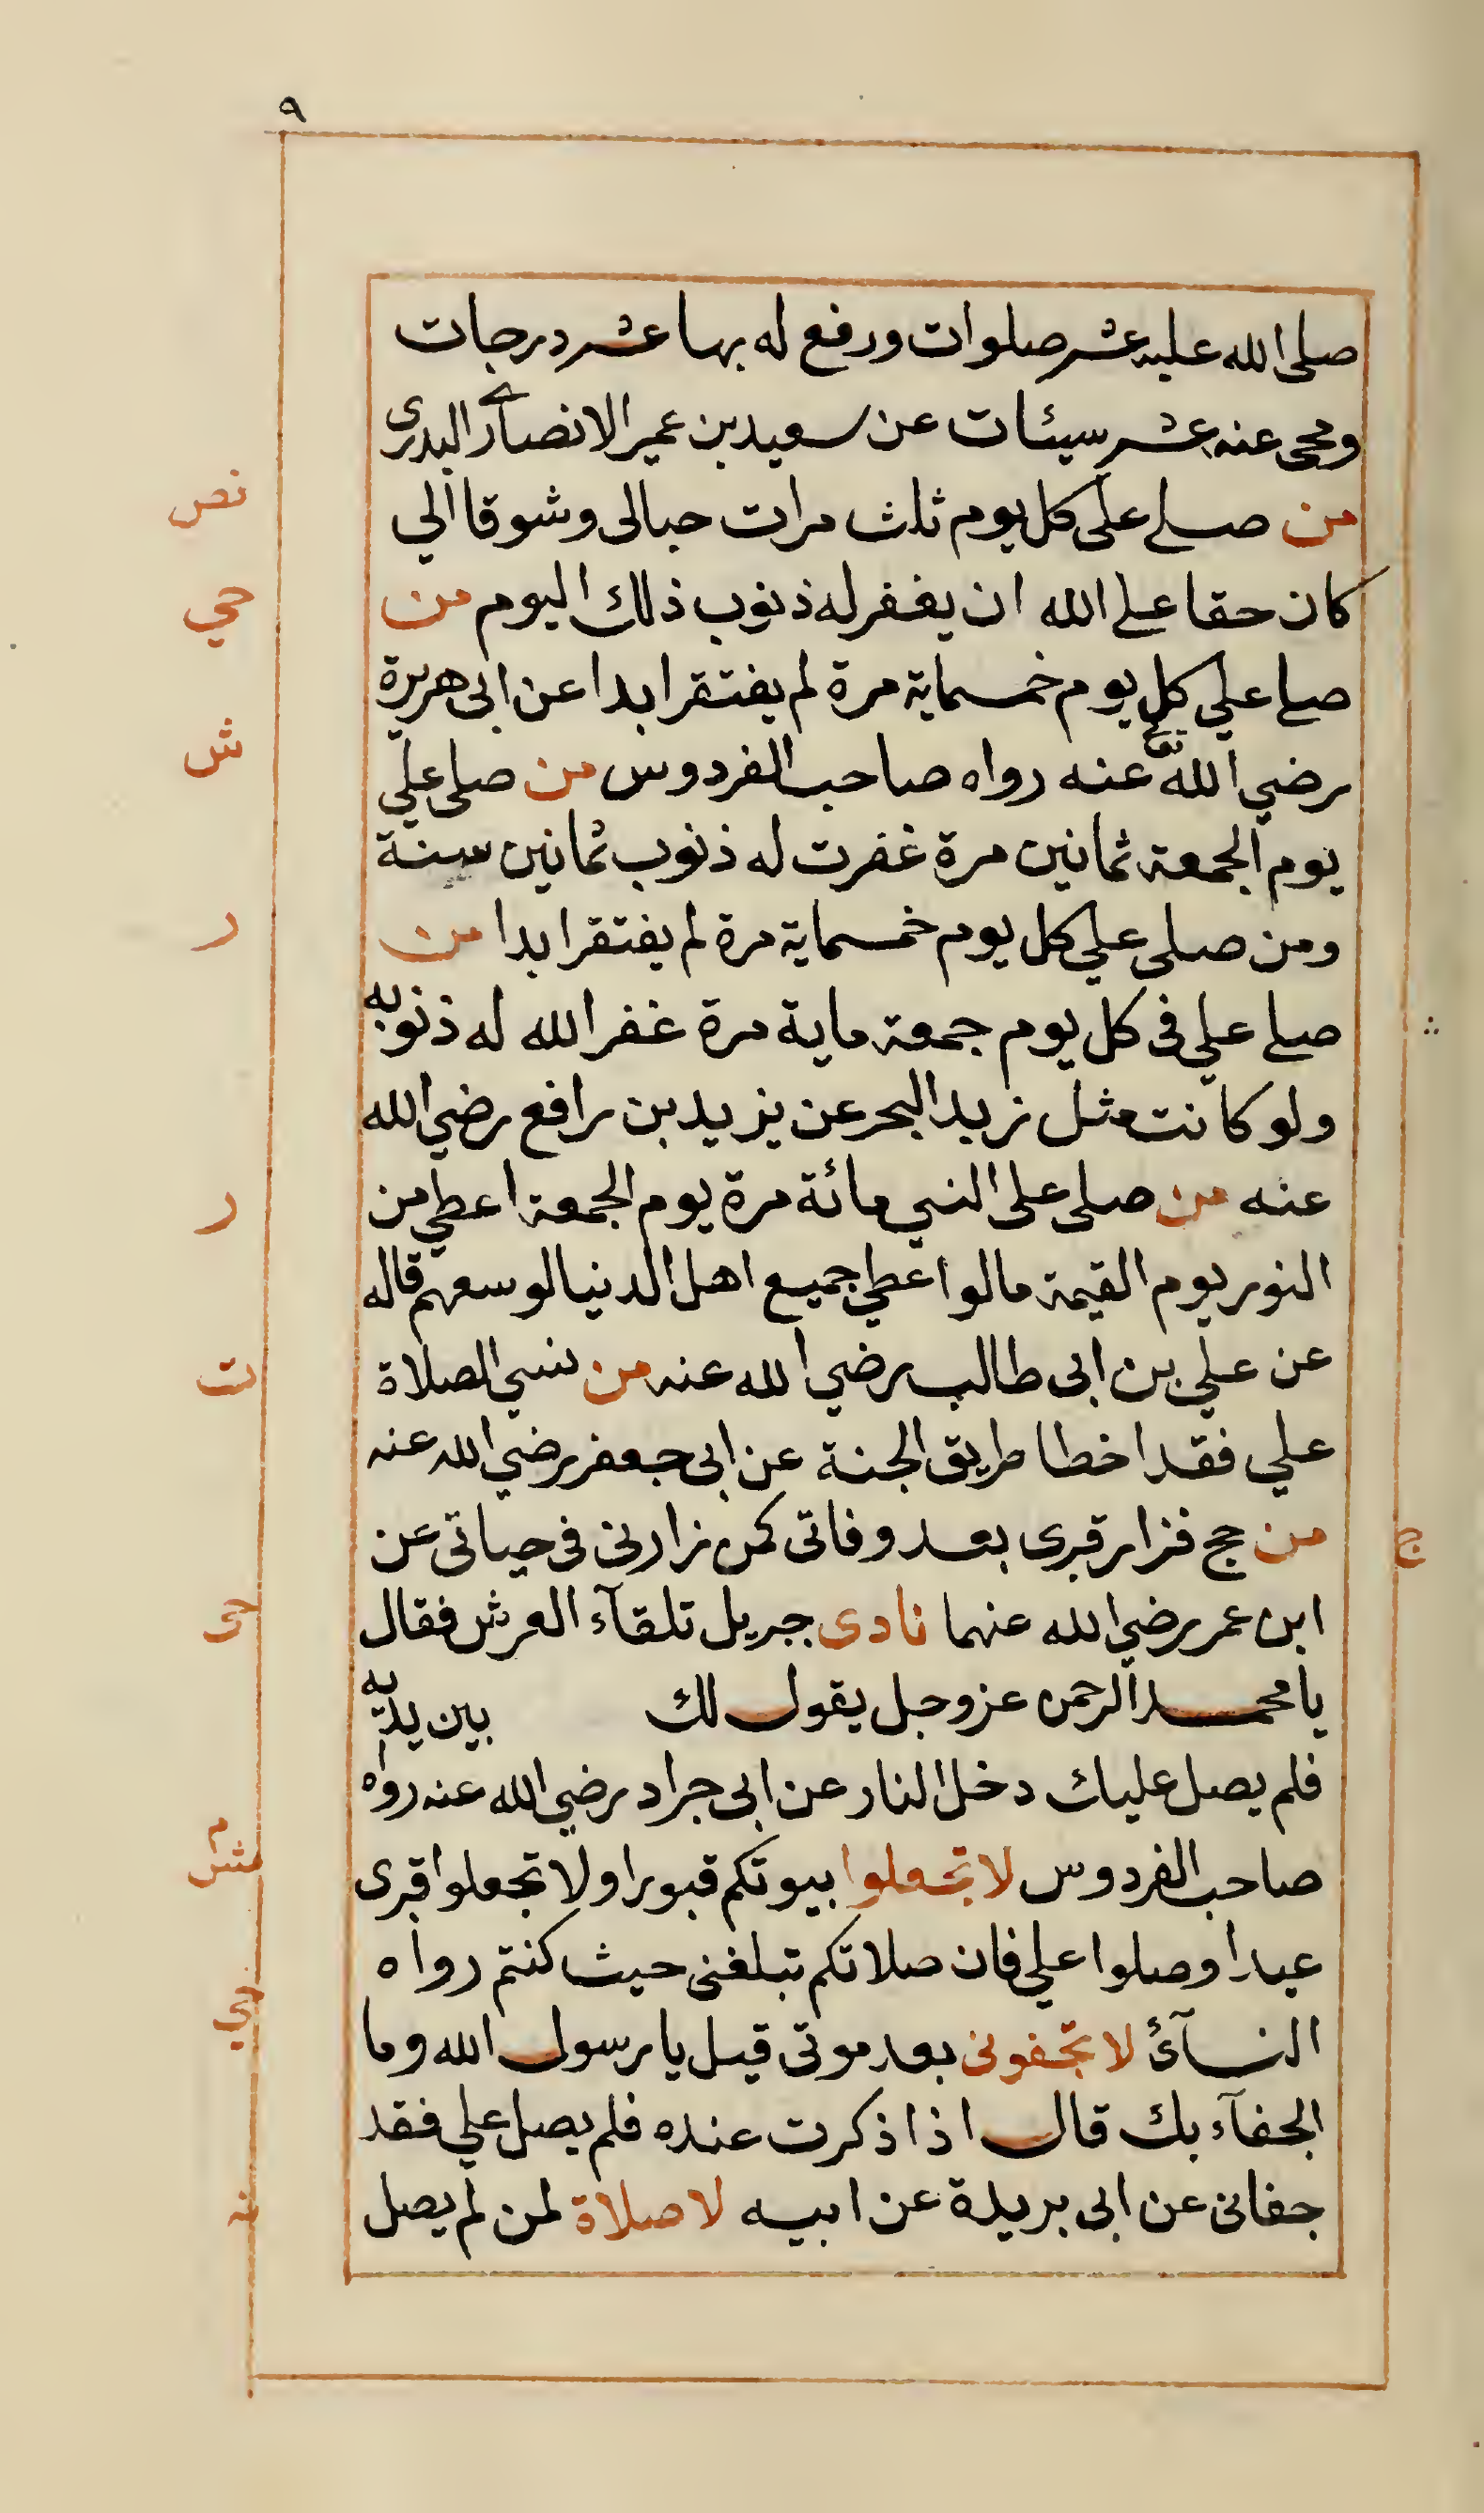 ٩
صلى الله عليه عشر صلوات ورفع له بها عشر درجات
ومحى عنه عشر سيئات عن سعيد بن عمير الانصارى البدرى
من صلى على كل يوم ثلث مرات حبا لى وشوقا الي
كان حقا على الله ان يغفر له ذنوب ذلك اليوم من
صلى علي كل يوم خمسماية مرة لم يفتقر ابدا عن ابى هريرة
رضي الله تع عنه رواه صاحب الفردوس من صلى علي
يوم الجمعة ثمانين مرة غفرت له ذنوب ثمانين سنة
ومن صلى علي كل يوم خمسماية مرة لم يفتقر ابدا من
صلى علي فى كل يوم جمعة ماية مرة غفر الله له ذنوبه
ولو كانت مثل زبد البحر عن يزيد بن رافع رضي الله
عنه من صلى على النبي مائة مرة يوم الجمعة اعطي من
النور يوم القيمة ما لو اعطي جميع اهل الدنيا لوسعهم قاله
عن علي بن ابى طالب رضي الله عنه من نسي الصلاة
علي فقد اخطا طريق الجنة عن ابى جعفر رضي الله عنه
من حج فزار قبرى بعد وفاتى كمن زارنى فى حياتى عن
ابن عمر رضي الله عنهما نادى جبريل تلقآء العرش فقال
يا محمد الرحمن عز وجل يقول لك بين يديه
فلم يصل عليك دخل النار عن ابى جراد رضي الله عنه رواه
صاحب الفردوس لا تجعلوا بيوتكم قبورا ولا تجعلوا قبرى
عيدا وصلوا علي فان صلاتكم تبلغنى حيث كنتم رواه
النسآئ لا تجفونى بعد موتى قيل يا رسول الله وما
الجفآء بك قال اذا ذكرت عنده فلم يصل علي فقد
جفانى عن ابى بريدة عن ابيه لا صلاة لمن لم يصل
نص
حي
ش
ر
ر
ت
ج
حى